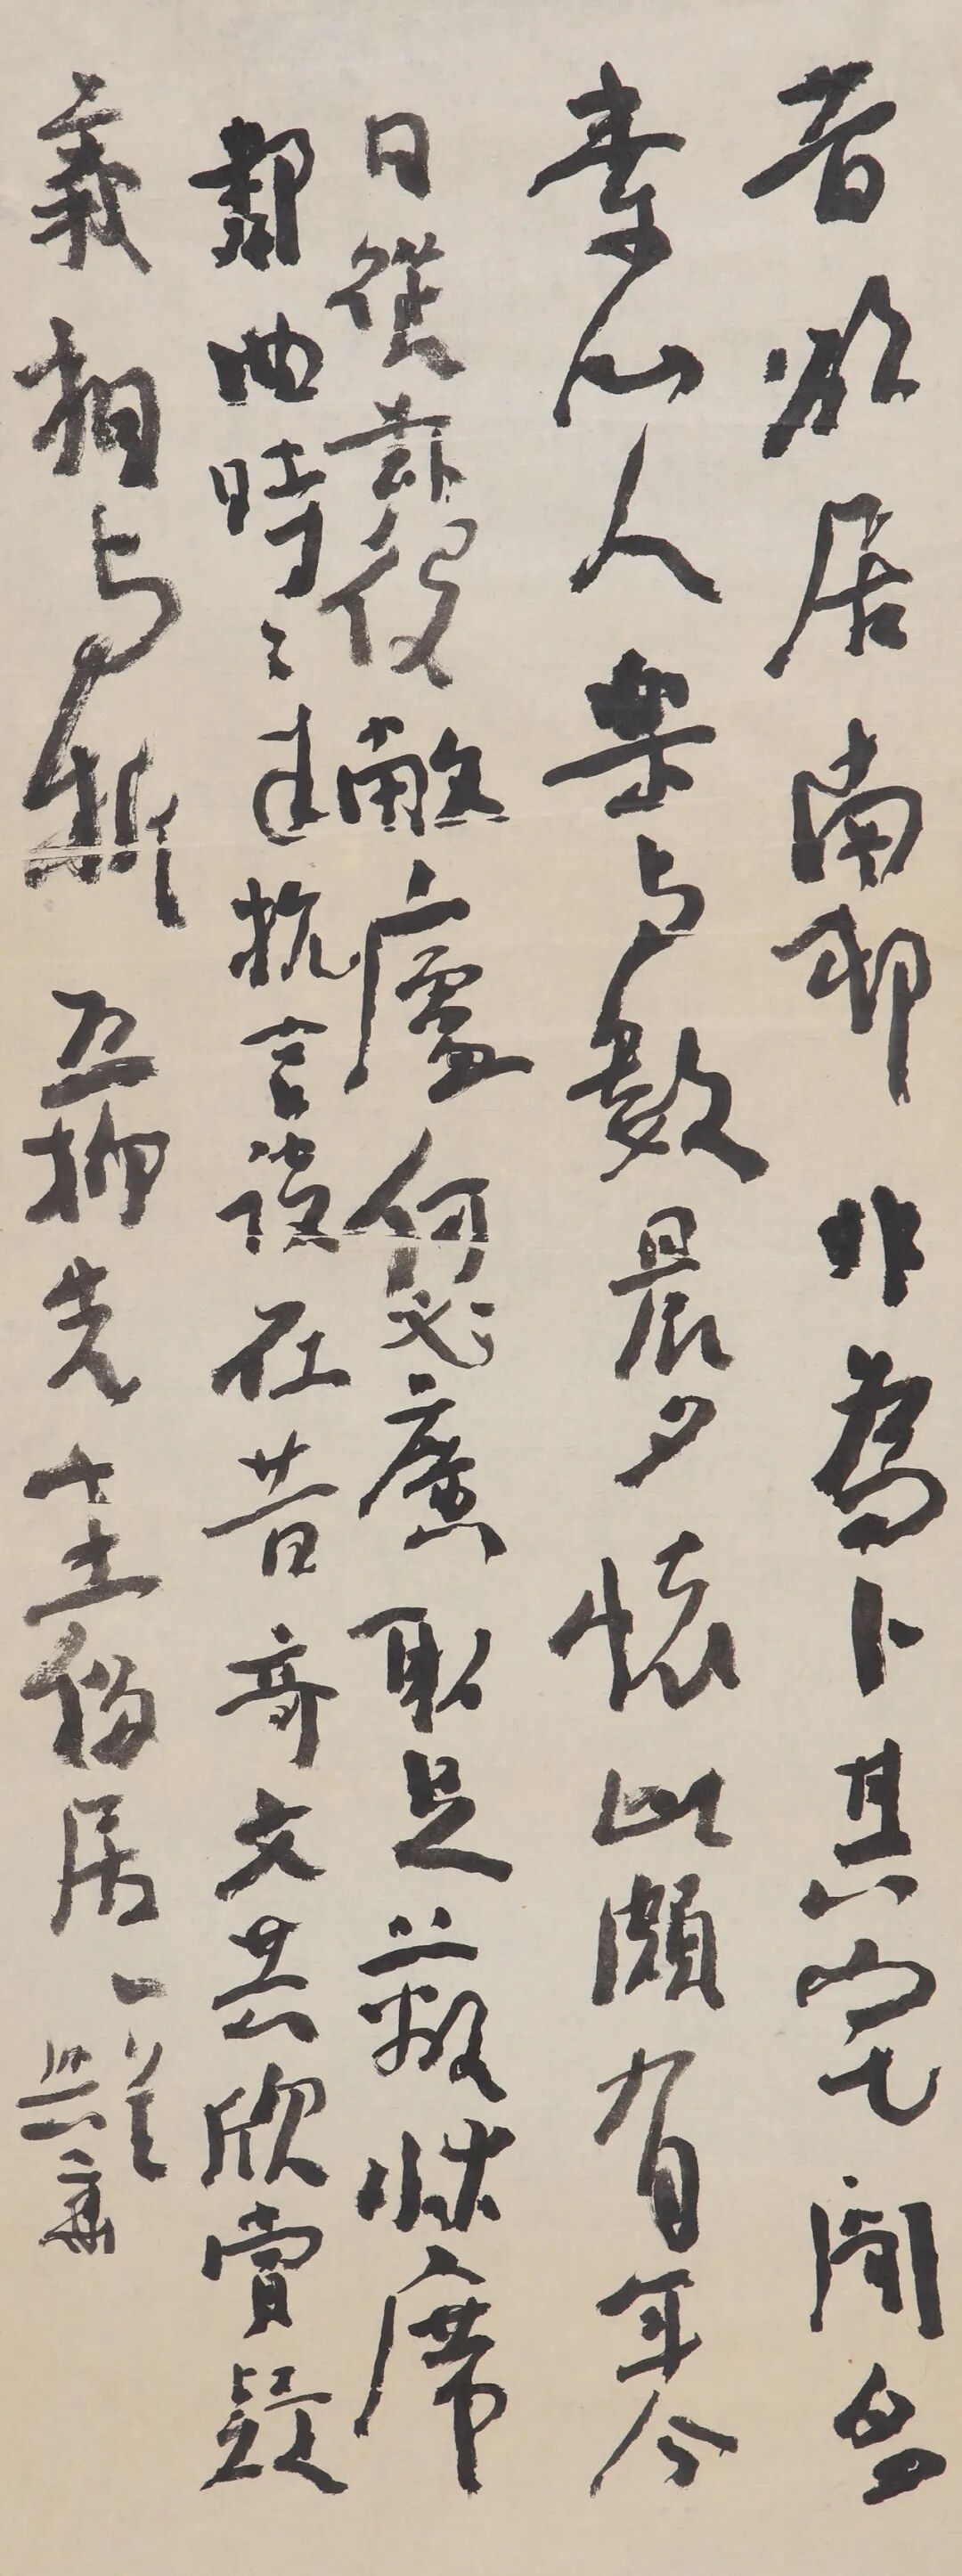 昔欲居南邨非為卜其宅聞多
素心人樂与數晨夕懷此頗有年今
日從茲役敝廬何必廣取足蔽牀席
鄰曲時〻來抗言談在昔奇文共欣賞疑
義相与析 五柳先生移居一首
無量